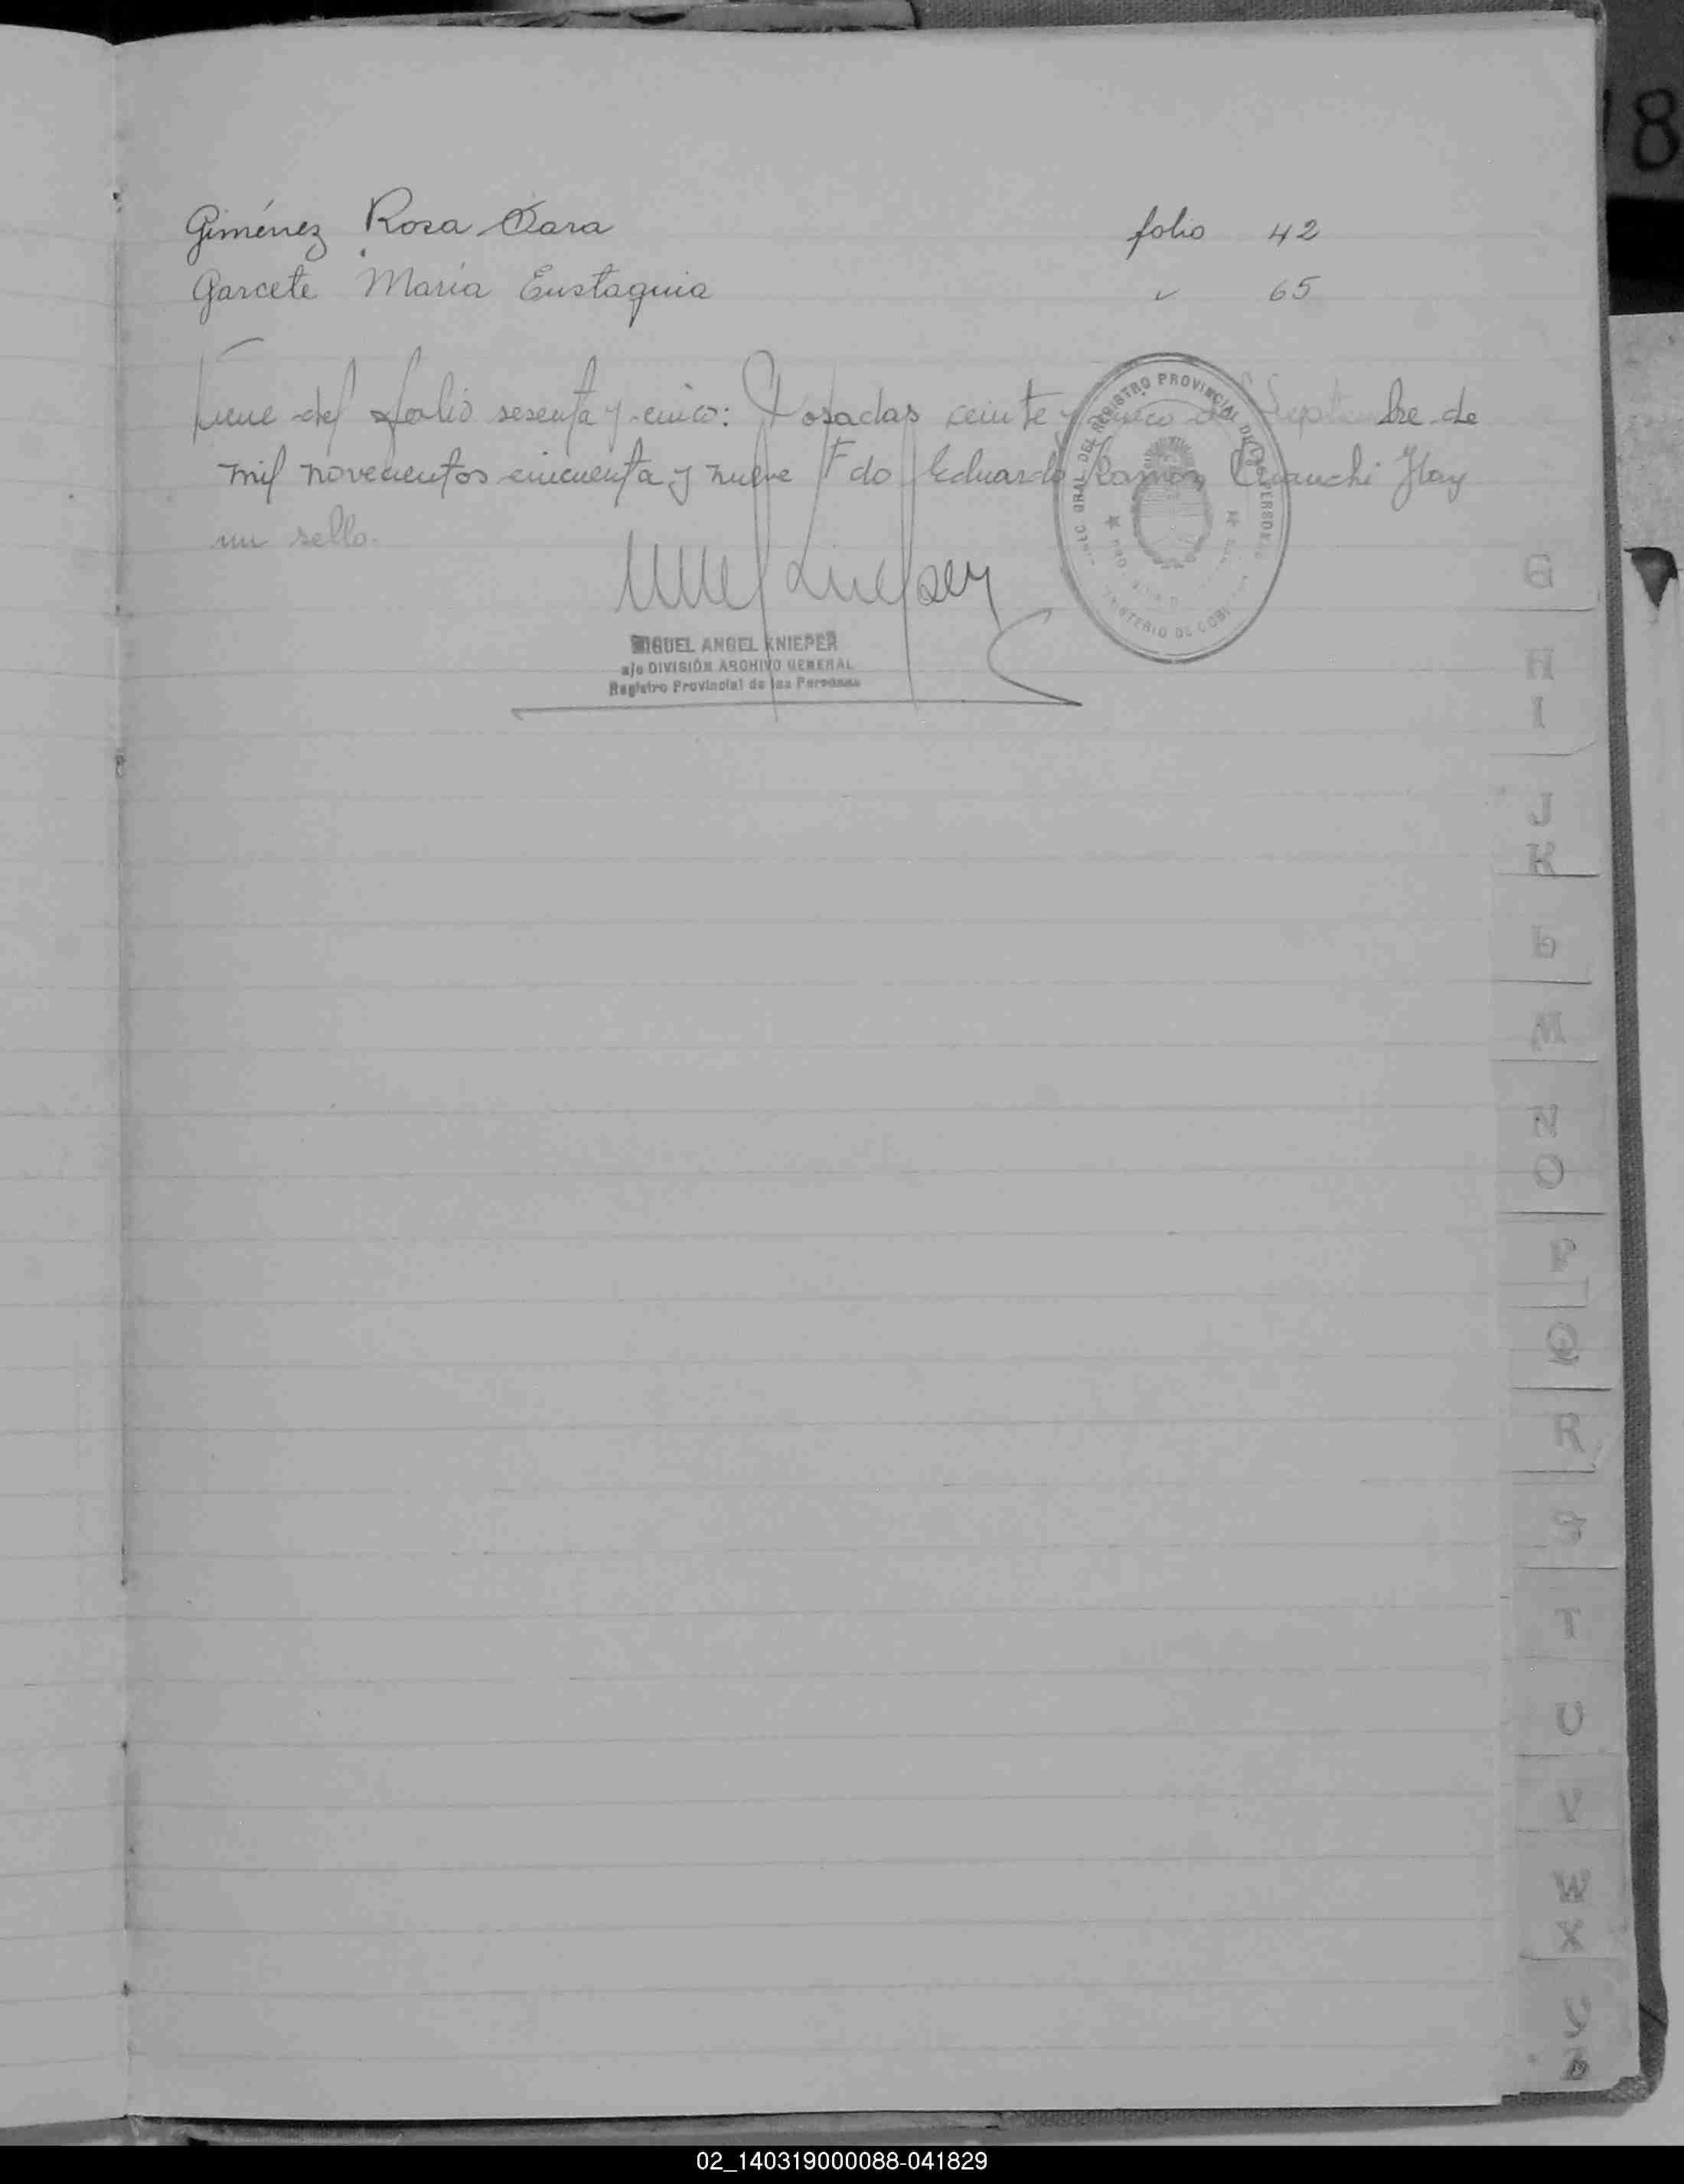 Giménez Rosa Clara folio 42
Garcete María Eustaquia " 65
Viene del folio sesenta y cinco: Posadas veinte y cinco de Septiembre de
mil novecientos cincuenta y nueve Fdo Eduardo Ramón Hay
un sello.
MIGUEL ANGEL KNIEPER
a/c DIVISIÓN ARCHIVO GENERAL
Registro Provincial de las Personas
GRAL. DEL REGISTRO PROVINCIAL DE LAS PERSONAS
MINISTERIO DE GOBI
G
H
I
J
K
L
M
N
O
P
Q
R
S
T
U
V
W
X
Y
Z
8
02_140319000088-041829